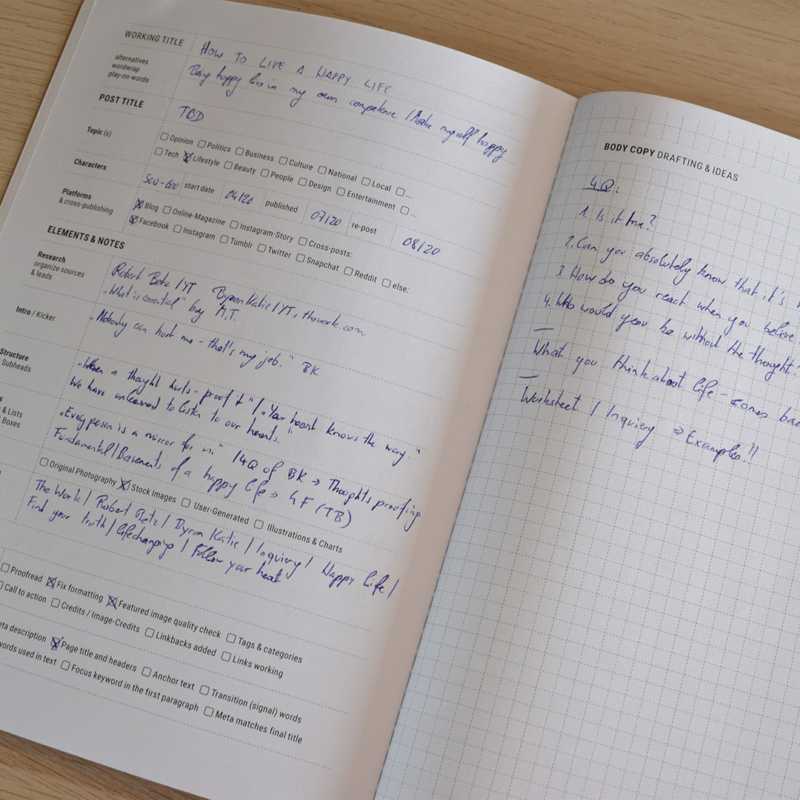 WORKING TITLE
alternatives
wordwrap
play-on-words
HOW TO LIVE A HAPPY LIFE
Being happy lies in my own competence / Make myself happy
POST TITLE
TBD
Topic (s)
Opinion Politics Business Culture National Local ...
Tech Lifestyle Beauty People Design Entertainment ...
Characters
500-600 start date 04/20 published 07/20 re-post 08/20
Platforms
& cross-publishing
Blog Online-Magazine Instagram-Story Cross-posts:
Facebook Instagram Tumblr Twitter Snapchat Reddit else:
ELEMENTS & NOTES
Research
organize sources
& leads
Robert Betz / YT Byron Katie / YT, thework.com
„What is essential" by M.T.
Intro / Kicker
„Nobody can hurt me - that's my job." BK
Structure
Subheads
„When a thought hurts - proof it" / „Your heart knows the way."
We have unlearned to listen to our hearts."
& Lists
Boxes
„Every person is a mirror for us." / 4Q of BK → Thoughts proofing
Fundamental / Basements of a happy life → 4F (TB)
Original Photography Stock Images User-Generated Illustrations & Charts
The Work / Robert Betz / Byron Katie / Inquiry / Happy Life /
Find your truth / lifechanging / Follow your heart
Proofread Fix formatting Featured image quality check Tags & categories
Call to action Credits / Image-Credits Linkbacks added Links working
description Page title and headers Anchor text Transition (signal) words
used in text Focus keyword in the first paragraph Meta matches final title
BODY COPY DRAFTING & IDEAS
4Q:
1. Is it true?
2. Can you absolutely know that it's
3. How do you react when you believe
4. Who would you be without the thought?
What you think about life - comes
Worksheet / Inquiry ⇒ Examples!!